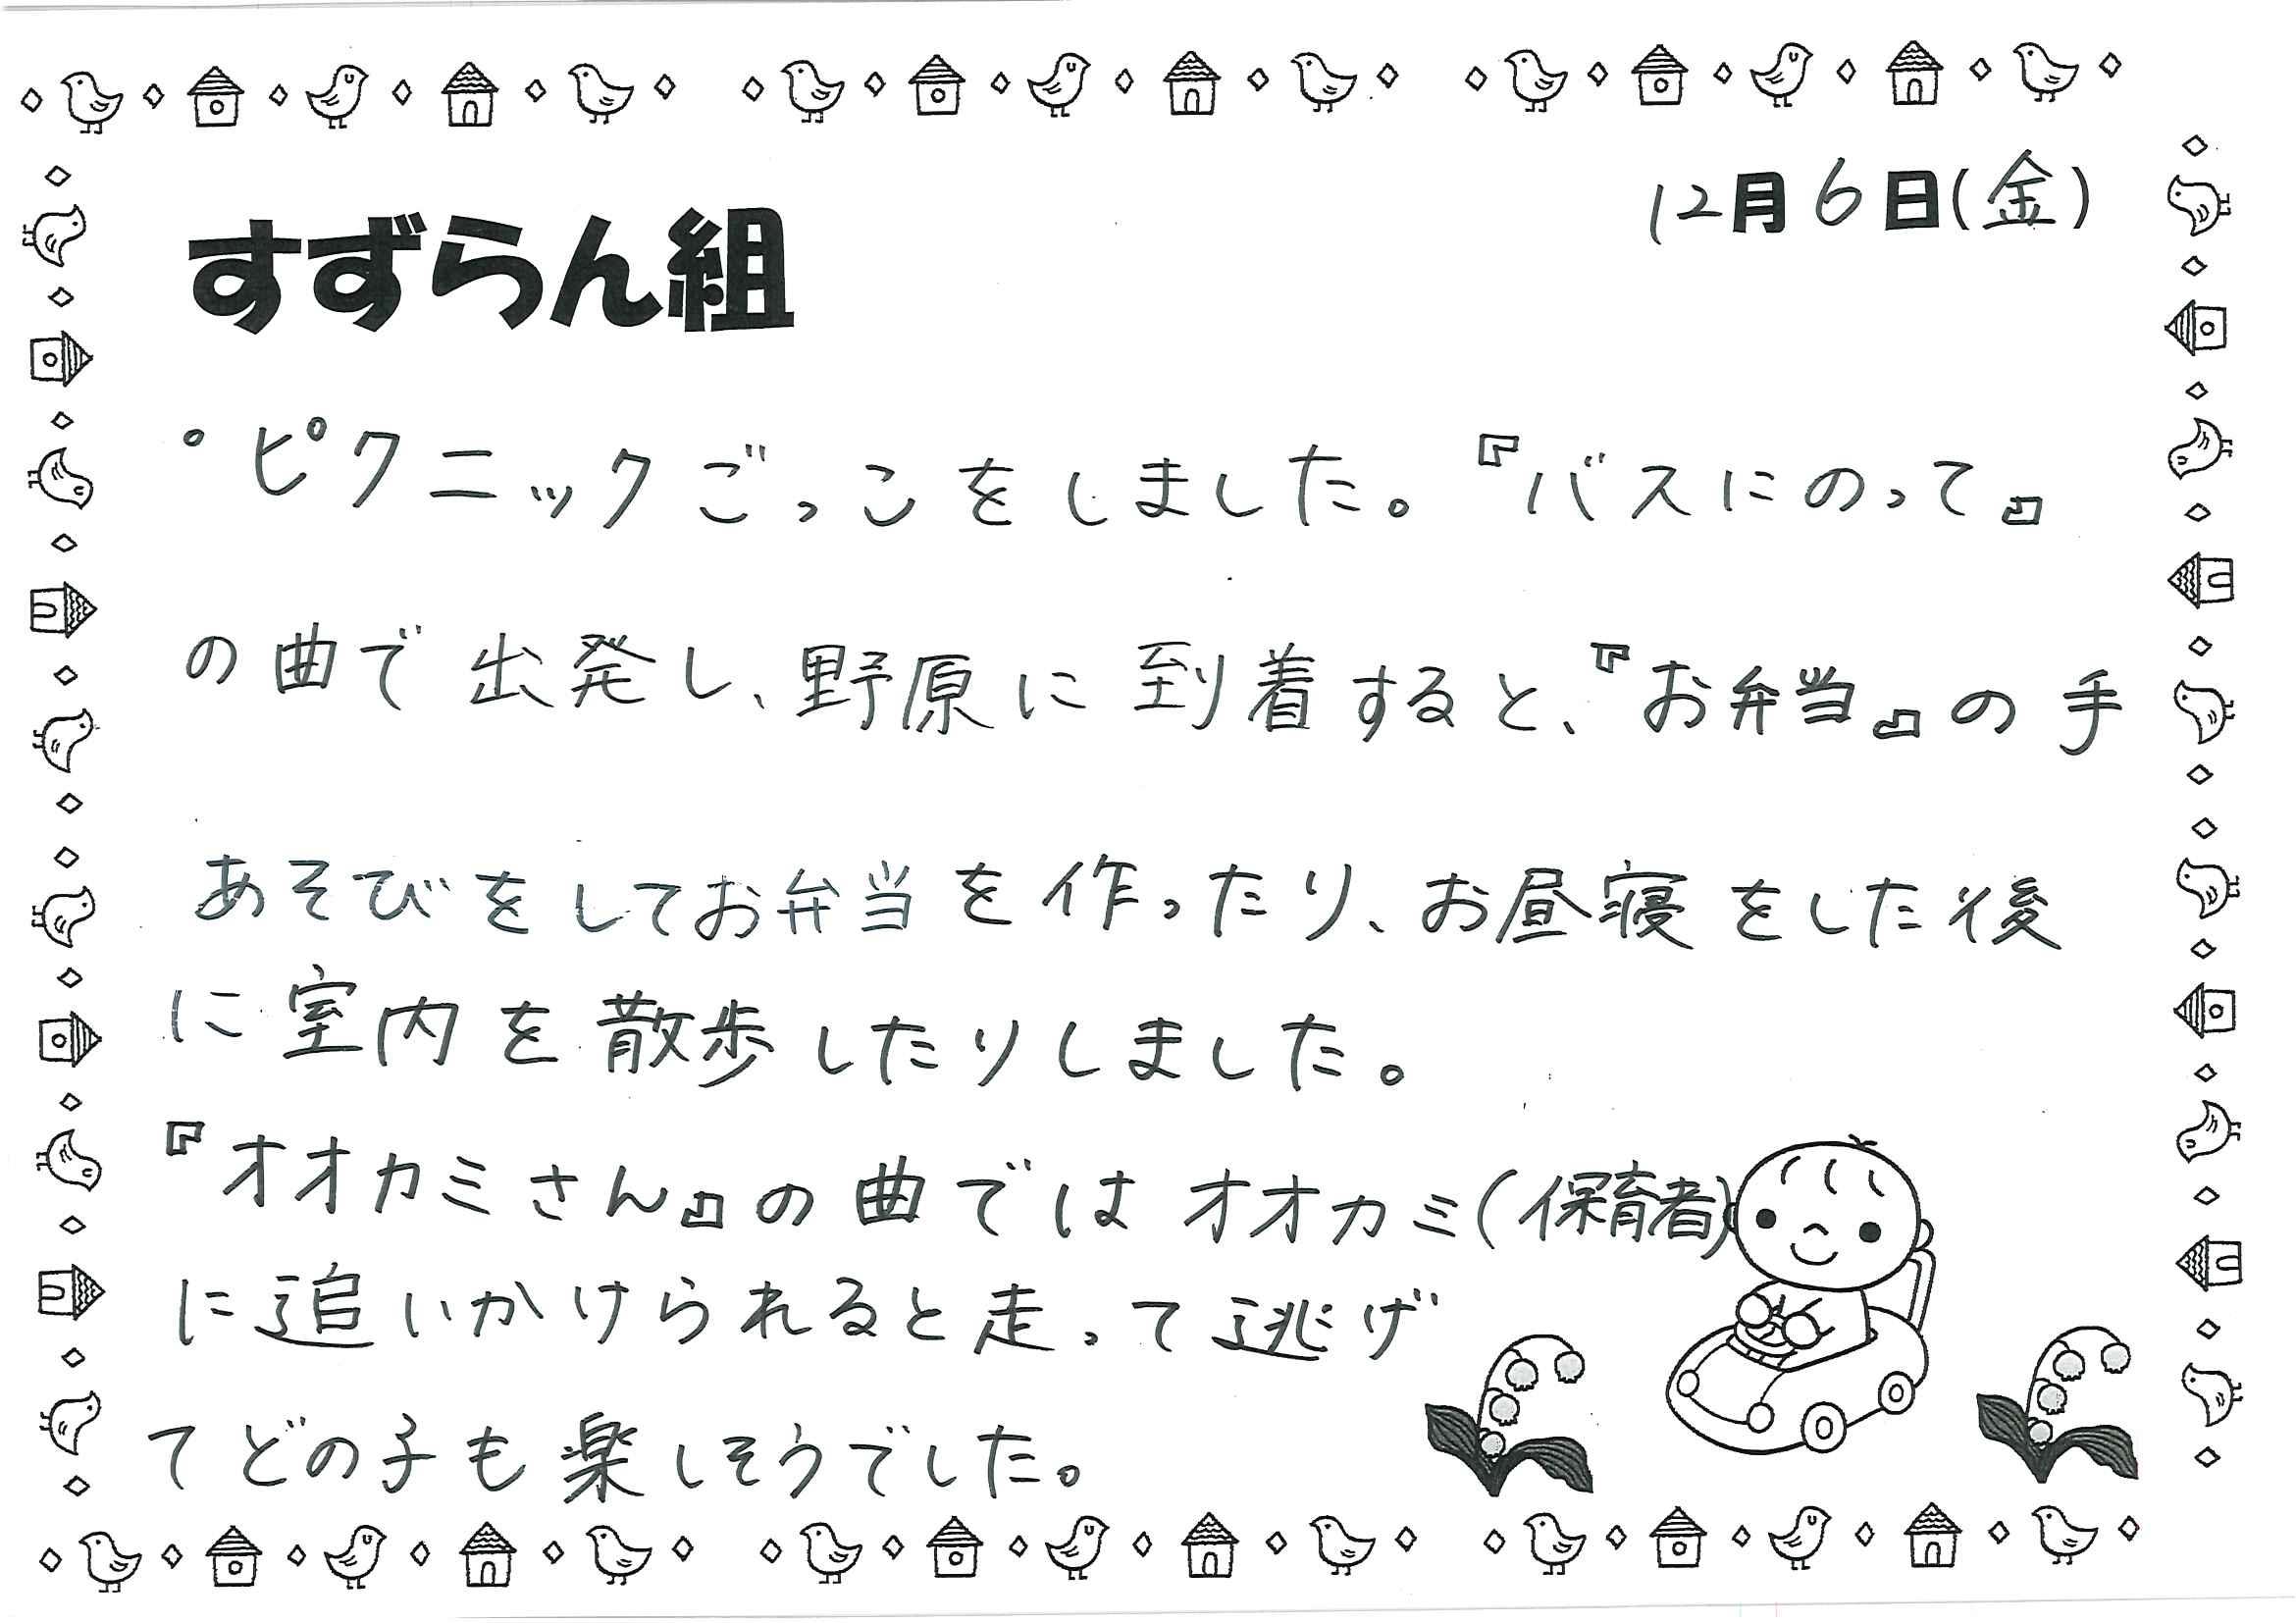 12月6日(金)
すずらん組
・ピクニックごっこをしました。『バスにのって』
の曲で出発し、野原に到着すると、『お弁当』の手
あそびをしてお弁当を作ったり、お昼寝をした後
に室内を散歩したりしました。
『オオカミさん』の曲ではオオカミ(保育者)
に追いかけられると走って逃げ
てどの子も楽しそうでした。